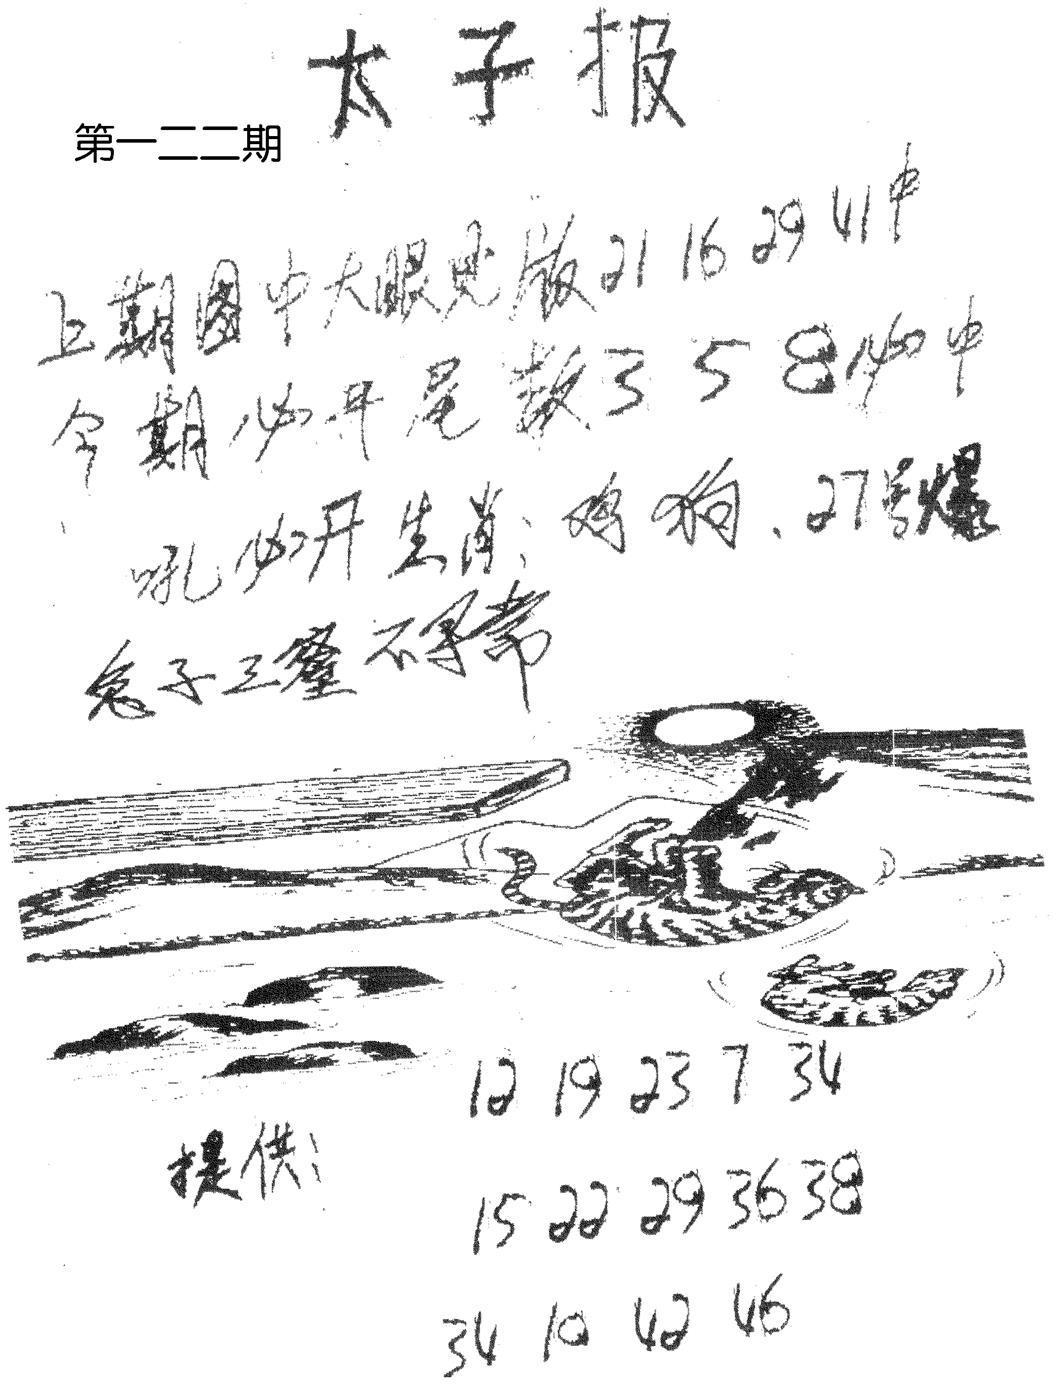 太子报
第一二二期
上期图中大眼见版21 16 29 41中
今期必开尾数3 5 8必中
吼必开生肖：鸡狗、27号爆
兔子三 不寻常
12 19 23 7 34
提供：
15 22 29 36 38
34 10 42 46